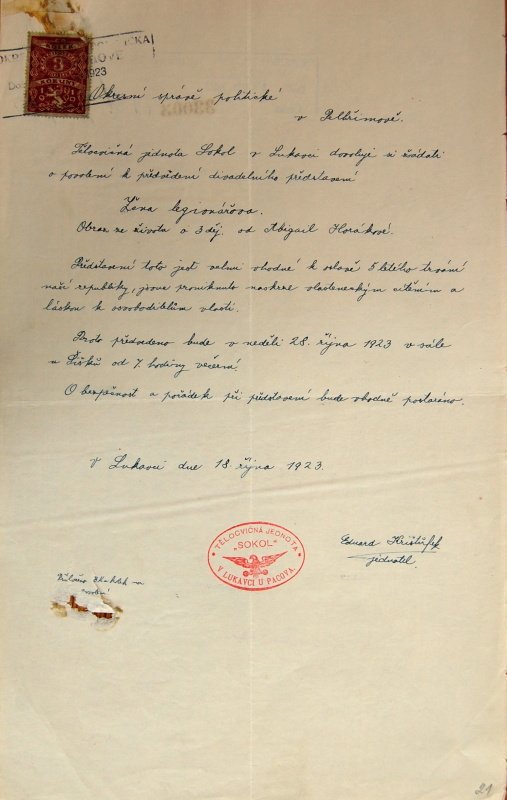 1923
3
Okresní správě politické
v Pelhřimově.
Tělocvičná jednota Sokol v Lukavci dovoluje si žádati
o povolení k předvedení divadelního představení
Žena legionářova.
Obraz ze života o 3 děj. od Abigail Horákové.
Představení toto jest velmi vhodné k oslavě 5 letého trvání
naší republiky, jsouc proniknuto naskrze vlasteneckým citěním a
láskou k osvoboditelům vlasti.
Proto předvedeno bude v neděli 28. října 1923 v sále
u Šišků od 7. hodiny večerní.
O bezpečnost a pořádek při představení bude vhodně postaráno.
V Lukavci dne 18 října 1923.
TĚLOCVIČNÁ JEDNOTA
„SOKOL"
V LUKAVCI U PACOVA.
Eduard Krištůfek
jednatel.
21